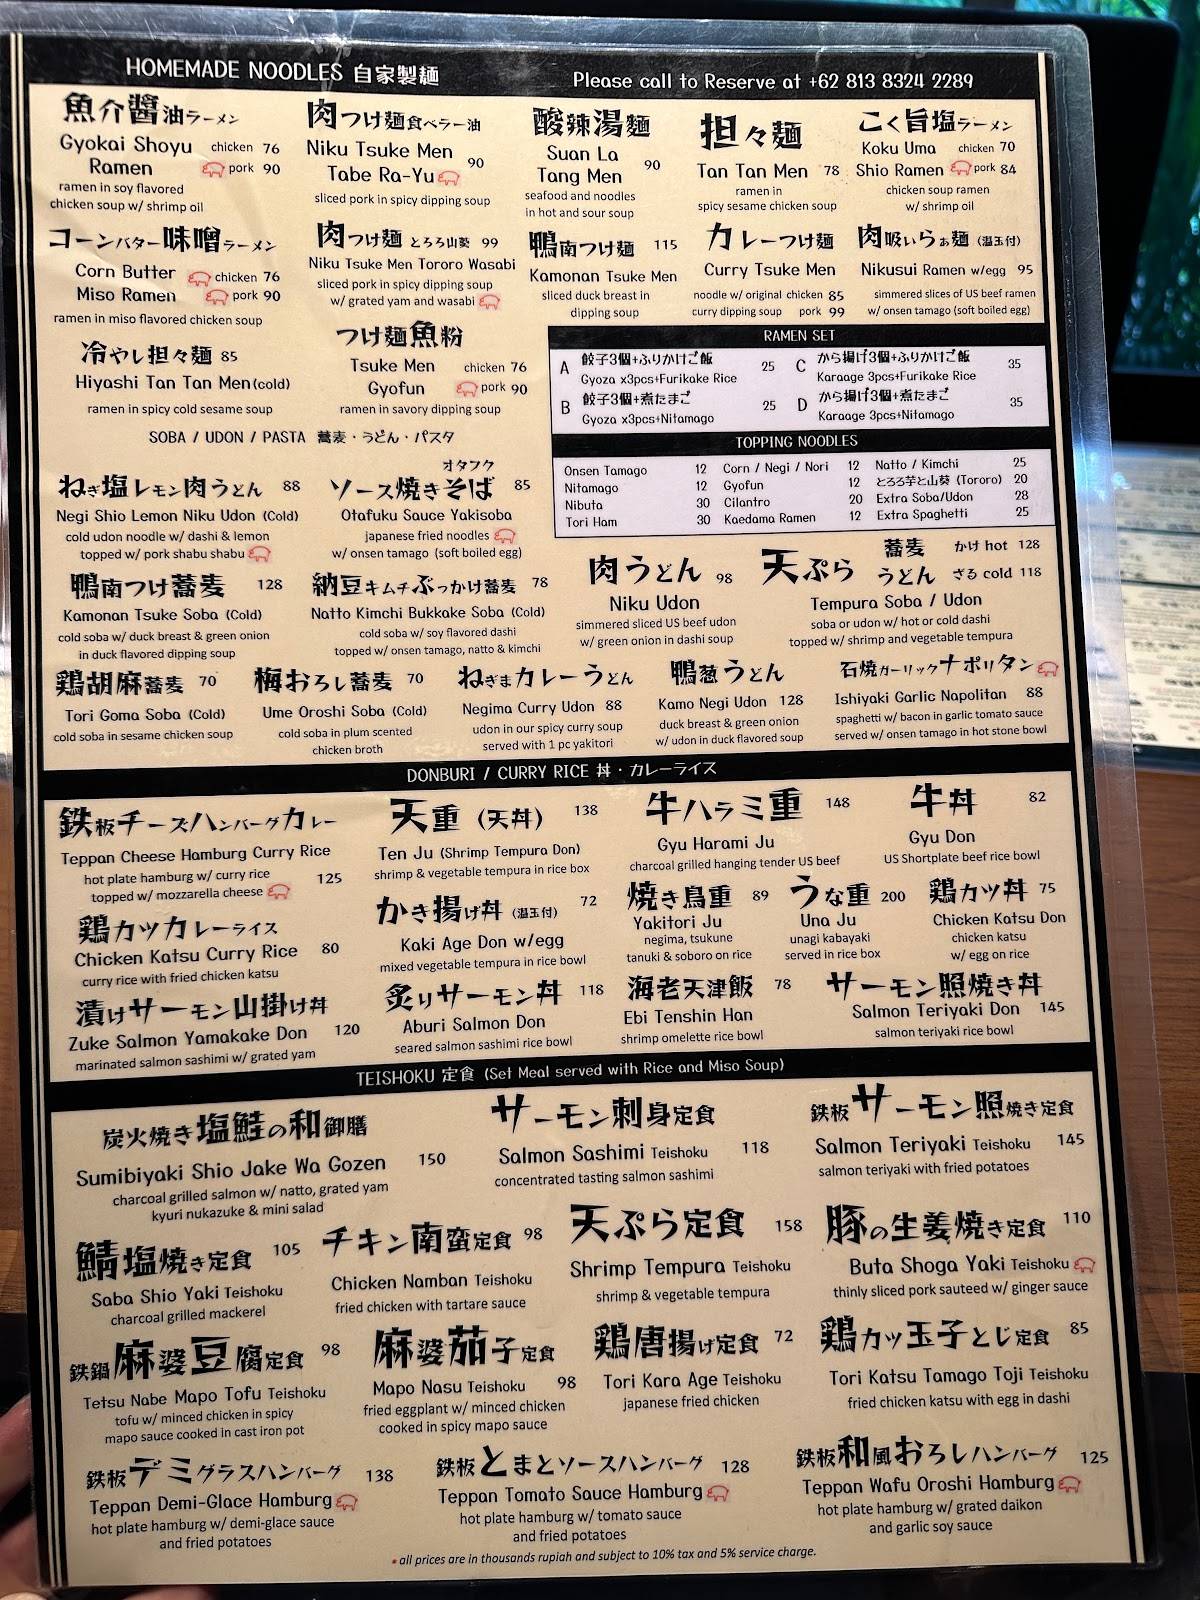 HOMEMADE NOODLES 自家製麺
Please call to Reserve at +62 813 8324 2289
魚介醤油ラーメン
Gyokai Shoyu chicken 76
Ramen pork 90
ramen in soy flavored
chicken soup w/ shrimp oil
肉つけ麺食べラー油
Niku Tsuke Men
Tabe Ra-Yu 90
sliced pork in spicy dipping soup
酸辣湯麺
Suan La
Tang Men 90
seafood and noodles
in hot and sour soup
担々麺
Tan Tan Men 78
ramen in
spicy sesame chicken soup
こく旨塩ラーメン
Koku Uma chicken 70
Shio Ramen pork 84
chicken soup ramen
w/ shrimp oil
コーンバター味噌ラーメン
Corn Butter chicken 76
Miso Ramen pork 90
ramen in miso flavored chicken soup
肉つけ麺 とろろ山葵 99
Niku Tsuke Men Tororo Wasabi
sliced pork in spicy dipping soup
w/ grated yam and wasabi
鴨南つけ麺 115
Kamonan Tsuke Men
sliced duck breast in
dipping soup
カレーつけ麺
Curry Tsuke Men
noodle w/ original chicken 85
curry dipping soup pork 99
肉吸いらぁ麺 (温玉付)
Nikusui Ramen w/egg 95
simmered slices of US beef ramen
w/ onsen tamago (soft boiled egg)
冷やし担々麺 85
Hiyashi Tan Tan Men(cold)
ramen in spicy cold sesame soup
つけ麺魚粉
Tsuke Men chicken 76
Gyofun pork 90
ramen in savory dipping soup
RAMEN SET
A 餃子3個+ふりかけご飯
Gyoza x3pcs+Furikake Rice 25
B 餃子3個+煮たまご
Gyoza x3pcs+Nitamago 25
C から揚げ3個+ふりかけご飯
Karaage 3pcs+Furikake Rice 35
D から揚げ3個+煮たまご
Karaage 3pcs+Nitamago 35
TOPPING NOODLES
Onsen Tamago 12
Nitamago 12
Nibuta 30
Tori Ham 30
Corn / Negi / Nori 12
Gyofun 12
Cilantro 20
Kaedama Ramen 12
Natto / Kimchi 25
とろろ芋と山葵 (Tororo) 20
Extra Soba/Udon 28
Extra Spaghetti 25
SOBA / UDON / PASTA 蕎麦・うどん・パスタ
ねぎ塩レモン肉うどん 88
Negi Shio Lemon Niku Udon (Cold)
cold udon noodle w/ dashi & lemon
topped w/ pork shabu shabu
オタフク
ソース焼きそば 85
Otafuku Sauce Yakisoba
japanese fried noodles
w/ onsen tamago (soft boiled egg)
鴨南つけ蕎麦 128
Kamonan Tsuke Soba (Cold)
cold soba w/ duck breast & green onion
in duck flavored dipping soup
納豆キムチぶっかけ蕎麦 78
Natto Kimchi Bukkake Soba (Cold)
cold soba w/ soy flavored dashi
topped w/ onsen tamago, natto & kimchi
肉うどん 98
Niku Udon
simmered sliced US beef udon
w/ green onion in dashi soup
天ぷら 蕎麦 かけ hot 128
うどん ざる cold 118
Tempura Soba / Udon
soba or udon w/ hot or cold dashi
topped w/ shrimp and vegetable tempura
鶏胡麻蕎麦 70
Tori Goma Soba (Cold)
cold soba in sesame chicken soup
梅おろし蕎麦 70
Ume Oroshi Soba (Cold)
cold soba in plum scented
chicken broth
ねぎまカレーうどん
Negima Curry Udon 88
udon in our spicy curry soup
served with 1 pc yakitori
鴨葱うどん
Kamo Negi Udon 128
duck breast & green onion
w/ udon in duck flavored soup
石焼ガーリックナポリタン
Ishiyaki Garlic Napolitan 88
spaghetti w/ bacon in garlic tomato sauce
served w/ onsen tamago in hot stone bowl
DONBURI / CURRY RICE 丼・カレーライス
鉄板チーズハンバーグカレー
Teppan Cheese Hamburg Curry Rice
hot plate hamburg w/ curry rice 125
topped w/ mozzarella cheese
天重 (天丼) 138
Ten Ju (Shrimp Tempura Don)
shrimp & vegetable tempura in rice box
牛ハラミ重 148
Gyu Harami Ju
charcoal grilled hanging tender US beef
牛丼 82
Gyu Don
US Shortplate beef rice bowl
鶏カツカレーライス
Chicken Katsu Curry Rice 80
curry rice with fried chicken katsu
かき揚げ丼 (温玉付) 72
Kaki Age Don w/egg
mixed vegetable tempura in rice bowl
焼き鳥重 89
Yakitori Ju
negima, tsukune
tanuki & soboro on rice
うな重 200
Una Ju
unagi kabayaki
served in rice box
鶏カツ丼 75
Chicken Katsu Don
chicken katsu
w/ egg on rice
漬けサーモン山掛け丼
Zuke Salmon Yamakake Don 120
marinated salmon sashimi w/ grated yam
炙りサーモン丼 118
Aburi Salmon Don
seared salmon sashimi rice bowl
海老天津飯 78
Ebi Tenshin Han
shrimp omelette rice bowl
サーモン照焼き丼
Salmon Teriyaki Don 145
salmon teriyaki rice bowl
TEISHOKU 定食 (Set Meal served with Rice and Miso Soup)
炭火焼き塩鮭の和御膳
Sumibiyaki Shio Jake Wa Gozen 150
charcoal grilled salmon w/ natto, grated yam
kyuri nukazuke & mini salad
サーモン刺身定食
Salmon Sashimi Teishoku 118
concentrated tasting salmon sashimi
鉄板サーモン照焼き定食
Salmon Teriyaki Teishoku 145
salmon teriyaki with fried potatoes
鯖塩焼き定食 105
Saba Shio Yaki Teishoku
charcoal grilled mackerel
チキン南蛮定食 98
Chicken Namban Teishoku
fried chicken with tartare sauce
天ぷら定食 158
Shrimp Tempura Teishoku
shrimp & vegetable tempura
豚の生姜焼き定食 110
Buta Shoga Yaki Teishoku
thinly sliced pork sauteed w/ ginger sauce
鉄鍋麻婆豆腐定食 98
Tetsu Nabe Mapo Tofu Teishoku
tofu w/ minced chicken in spicy
mapo sauce cooked in cast iron pot
麻婆茄子定食
Mapo Nasu Teishoku 98
fried eggplant w/ minced chicken
cooked in spicy mapo sauce
鶏唐揚げ定食 72
Tori Kara Age Teishoku
japanese fried chicken
鶏カツ玉子とじ定食 85
Tori Katsu Tamago Toji Teishoku
fried chicken katsu with egg in dashi
鉄板デミグラスハンバーグ 138
Teppan Demi-Glace Hamburg
hot plate hamburg w/ demi-glace sauce
and fried potatoes
鉄板とまとソースハンバーグ 128
Teppan Tomato Sauce Hamburg
hot plate hamburg w/ tomato sauce
and fried potatoes
鉄板和風おろしハンバーグ 125
Teppan Wafu Oroshi Hamburg
hot plate hamburg w/ grated daikon
and garlic soy sauce
• all prices are in thousands rupiah and subject to 10% tax and 5% service charge.